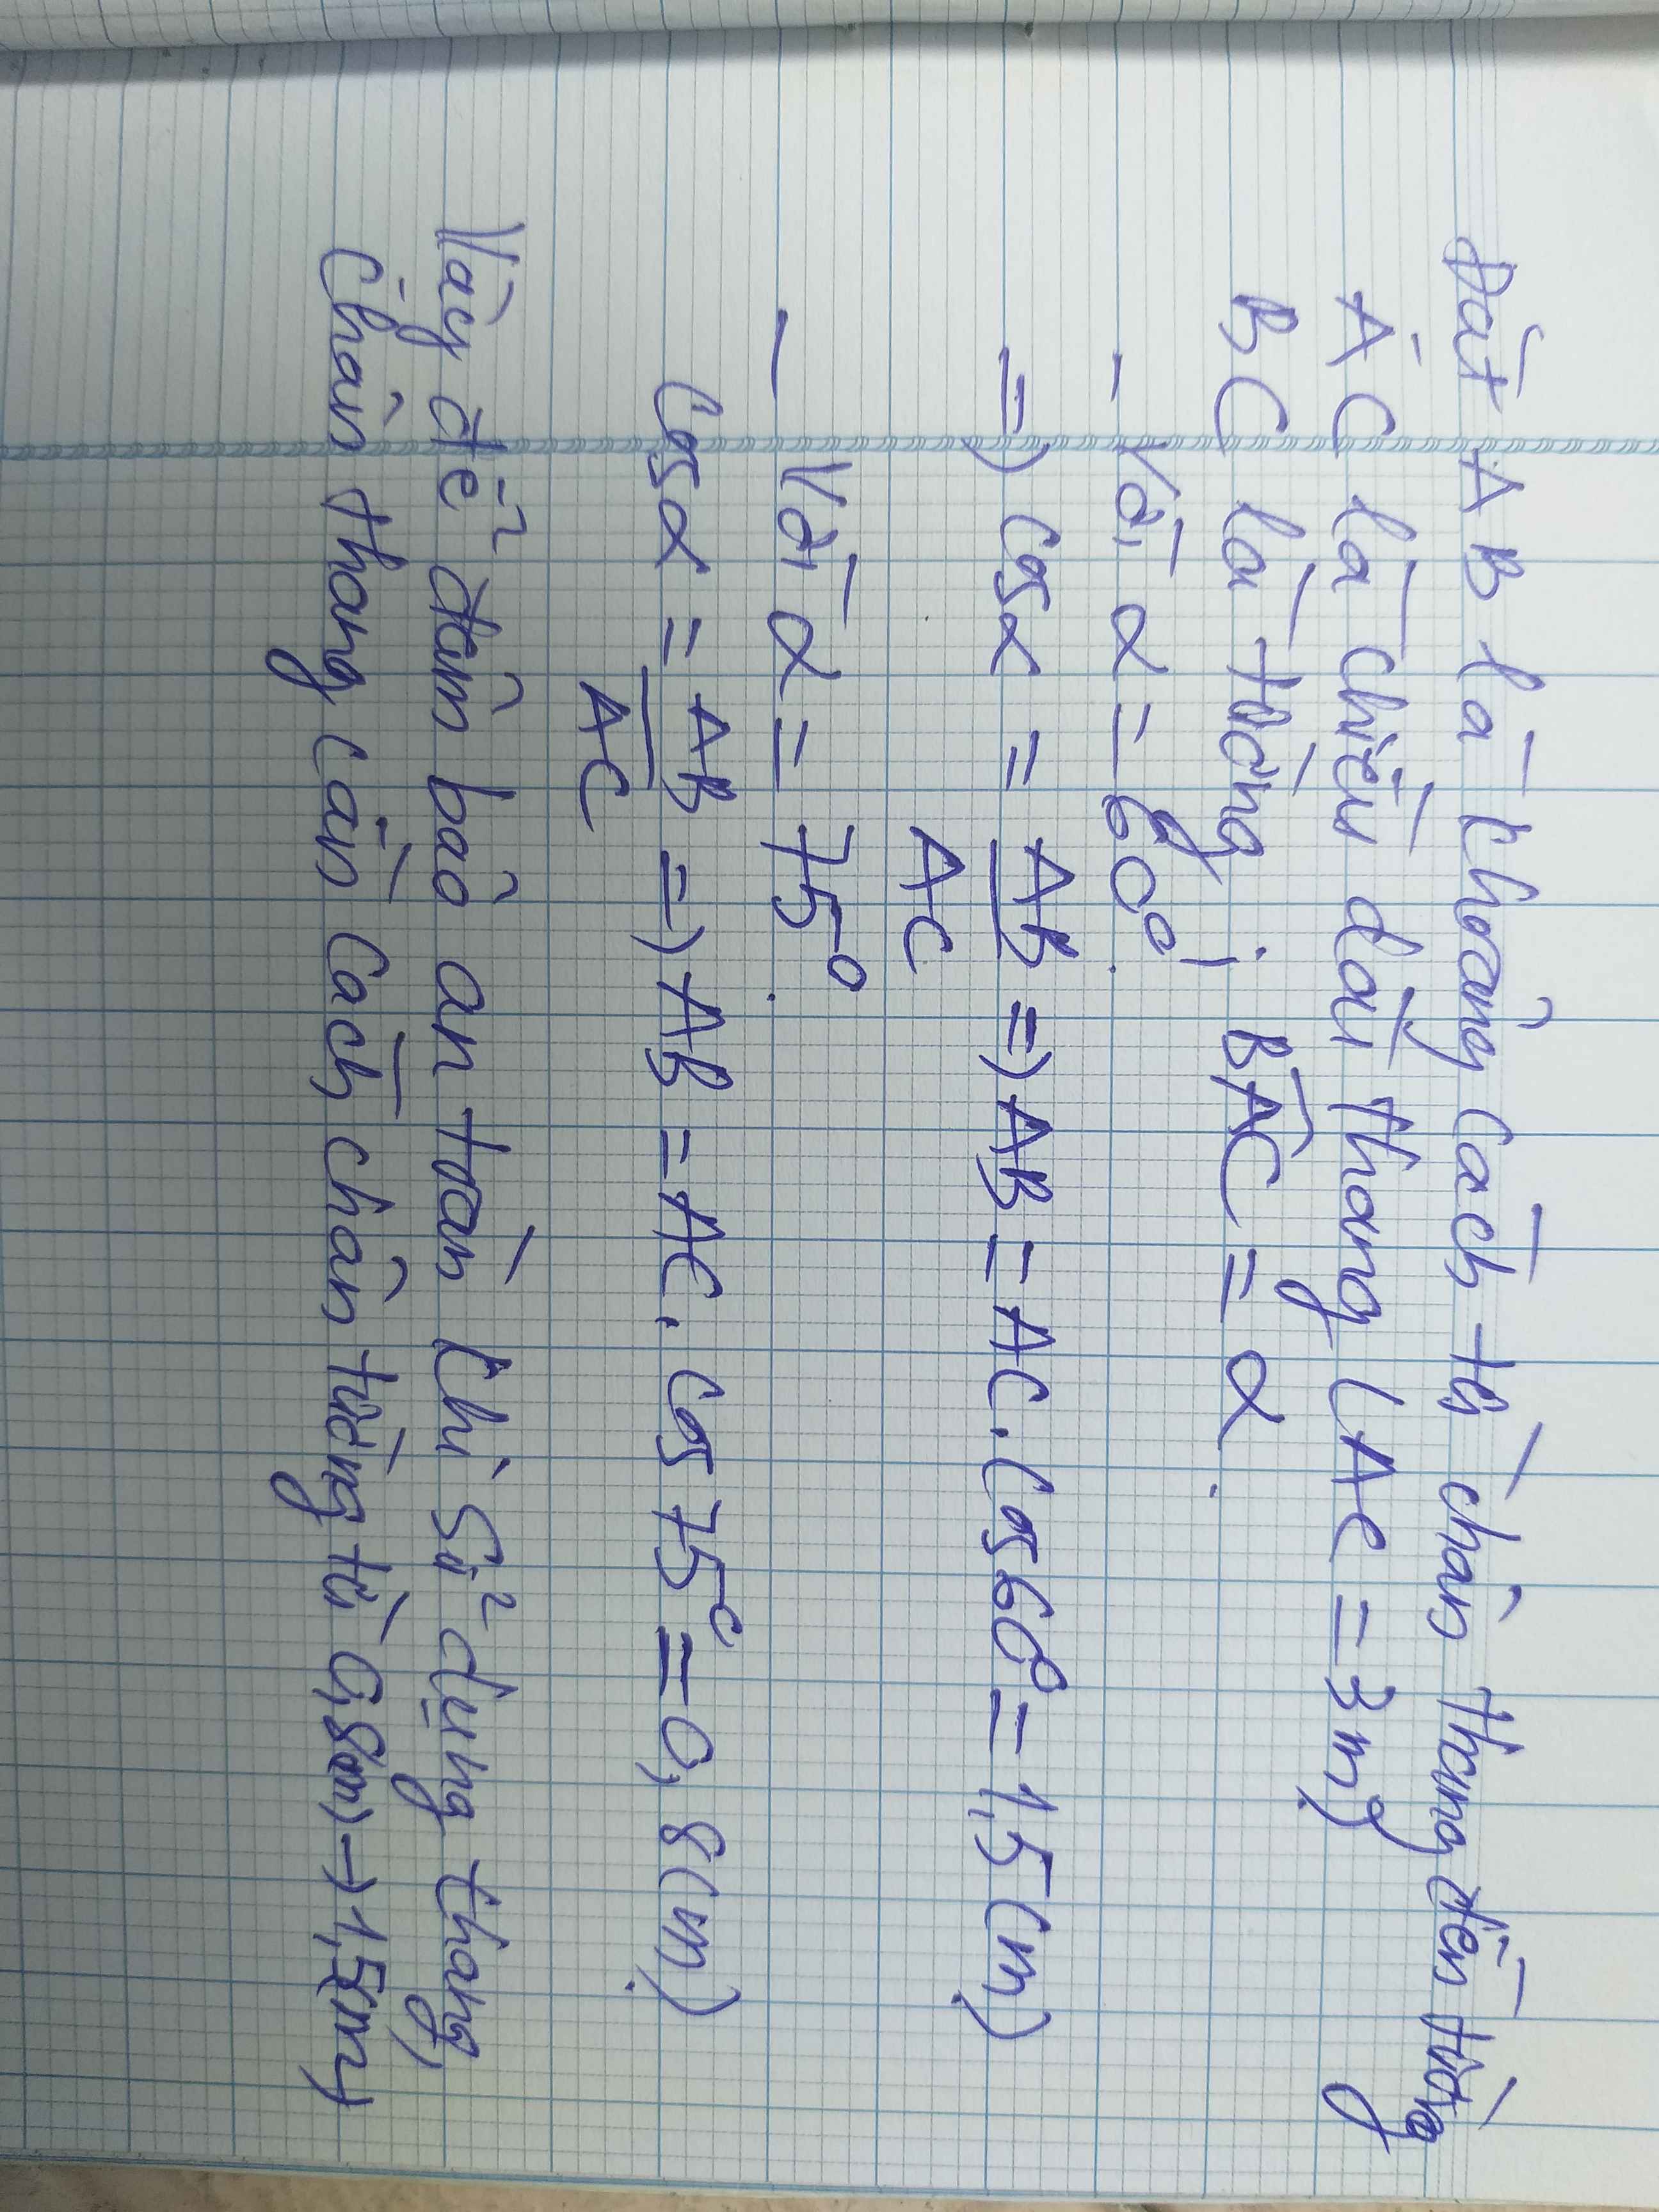 Đặt AB là khoảng cách từ chân thang đến tường
AC là chiều dài thang (AC = 3m)
BC là tường ; BAC = α.
- Với α = 60°,
=) cosα = AB =) AB = AC. cos60° = 1,5 (m)
AC
- Với α = 75°.
cosα = AB =) AB = AC. cos 75° = 0,8 (m)
AC
Vậy để đảm bảo an toàn khi sử dụng thang,
chân thang cần cách chân tường từ 0,8(m) → 1,5(m)